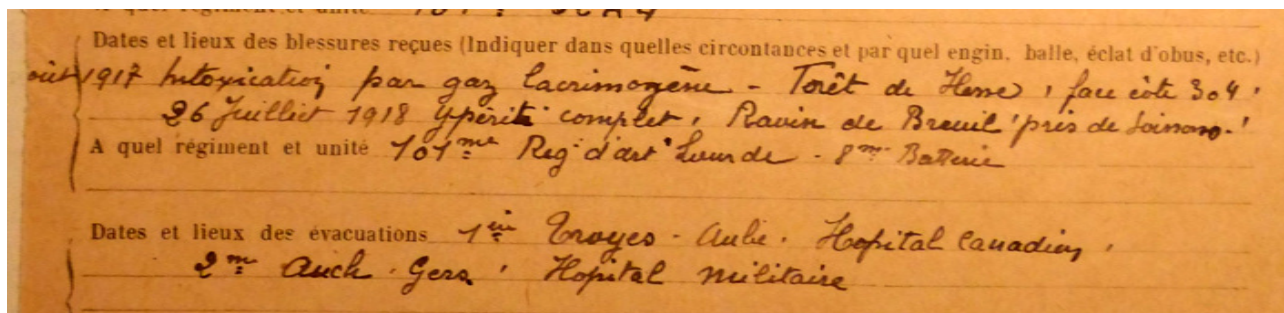 régiment et unité 101
Dates et lieux des blessures reçues (Indiquer dans quelles circontances et par quel engin, balle, éclat d'obus, etc.)
août 1917 Intoxication par gaz lacrimogène - Forêt de Hesse, face côte 304.
26 Juillet 1918 ypérité complet, Ravin de Breuil près de Soissons.
A quel régiment et unité 101me Reg d'art Lourde - 8me Batterie
Dates et lieux des évacuations 1er Troyes - Aube. Hopital Canadien,
2me Auch. Gers. Hopital Militaire